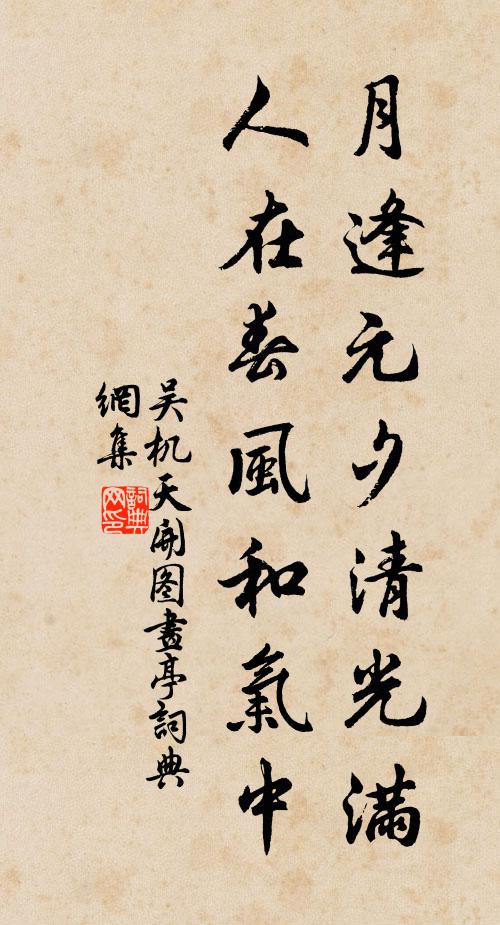 月逢元夕清光滿
人在春風和氣中
吴机天開图畫亭詞典
網集
詞典网印